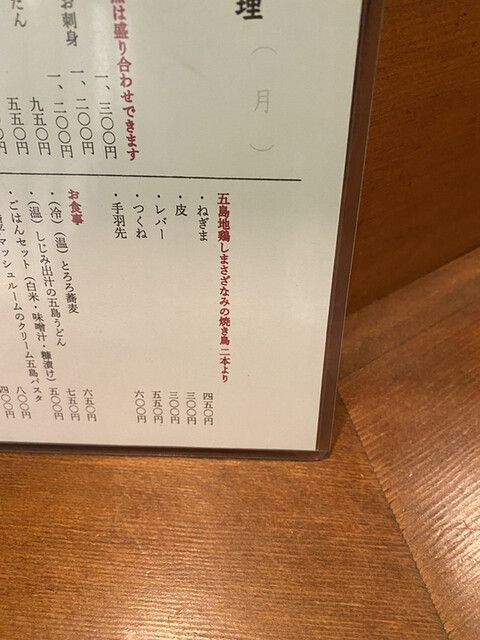 理
（ 月 ）
は盛り合わせできます
一、三〇〇円
お刺身 一、二〇〇円
一、二〇〇円
たん
九五〇円
五五〇円
五島地鶏しまさざなみの焼き鳥 二本より
・ねぎま 四五〇円
・皮 三〇〇円
・レバー 三〇〇円
・つくね 五五〇円
・手羽先 六〇〇円
お食事
・（冷）（温）とろろ蕎麦 六五〇円
・（温）しじみ出汁の五島うどん 七五〇円
・ごはんセット（白米・味噌汁・糠漬け） 五〇〇円
マッシュルームのクリーム五島パスタ 八〇〇円
四〇〇円